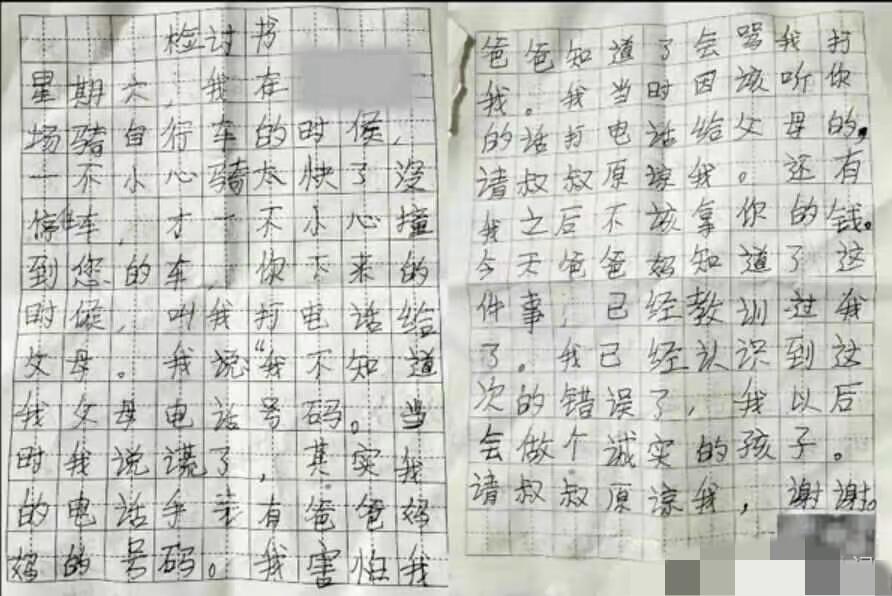 检讨书
星期六，我在
场骑自行车的时候，
一不小心骑太快了没
停住车，才一不小心撞
到您的车，你下来的
时候，叫我打电话给
父母。我说“我不知道
我父母电话号码。当
时我说谎了，其实我
的电话手表有爸爸妈
妈的号码。我害怕我
爸爸知道了会骂我打
我。我当时因该听你
的话打电话给父母的，
请叔叔原谅我。还有
我之后不该拿你的钱。
今天爸爸妈知道了这
件事，已经教训过我
了。我已经认识到这
次的错误了，我以后
会做个诚实的孩子。
请叔叔原谅我，谢谢